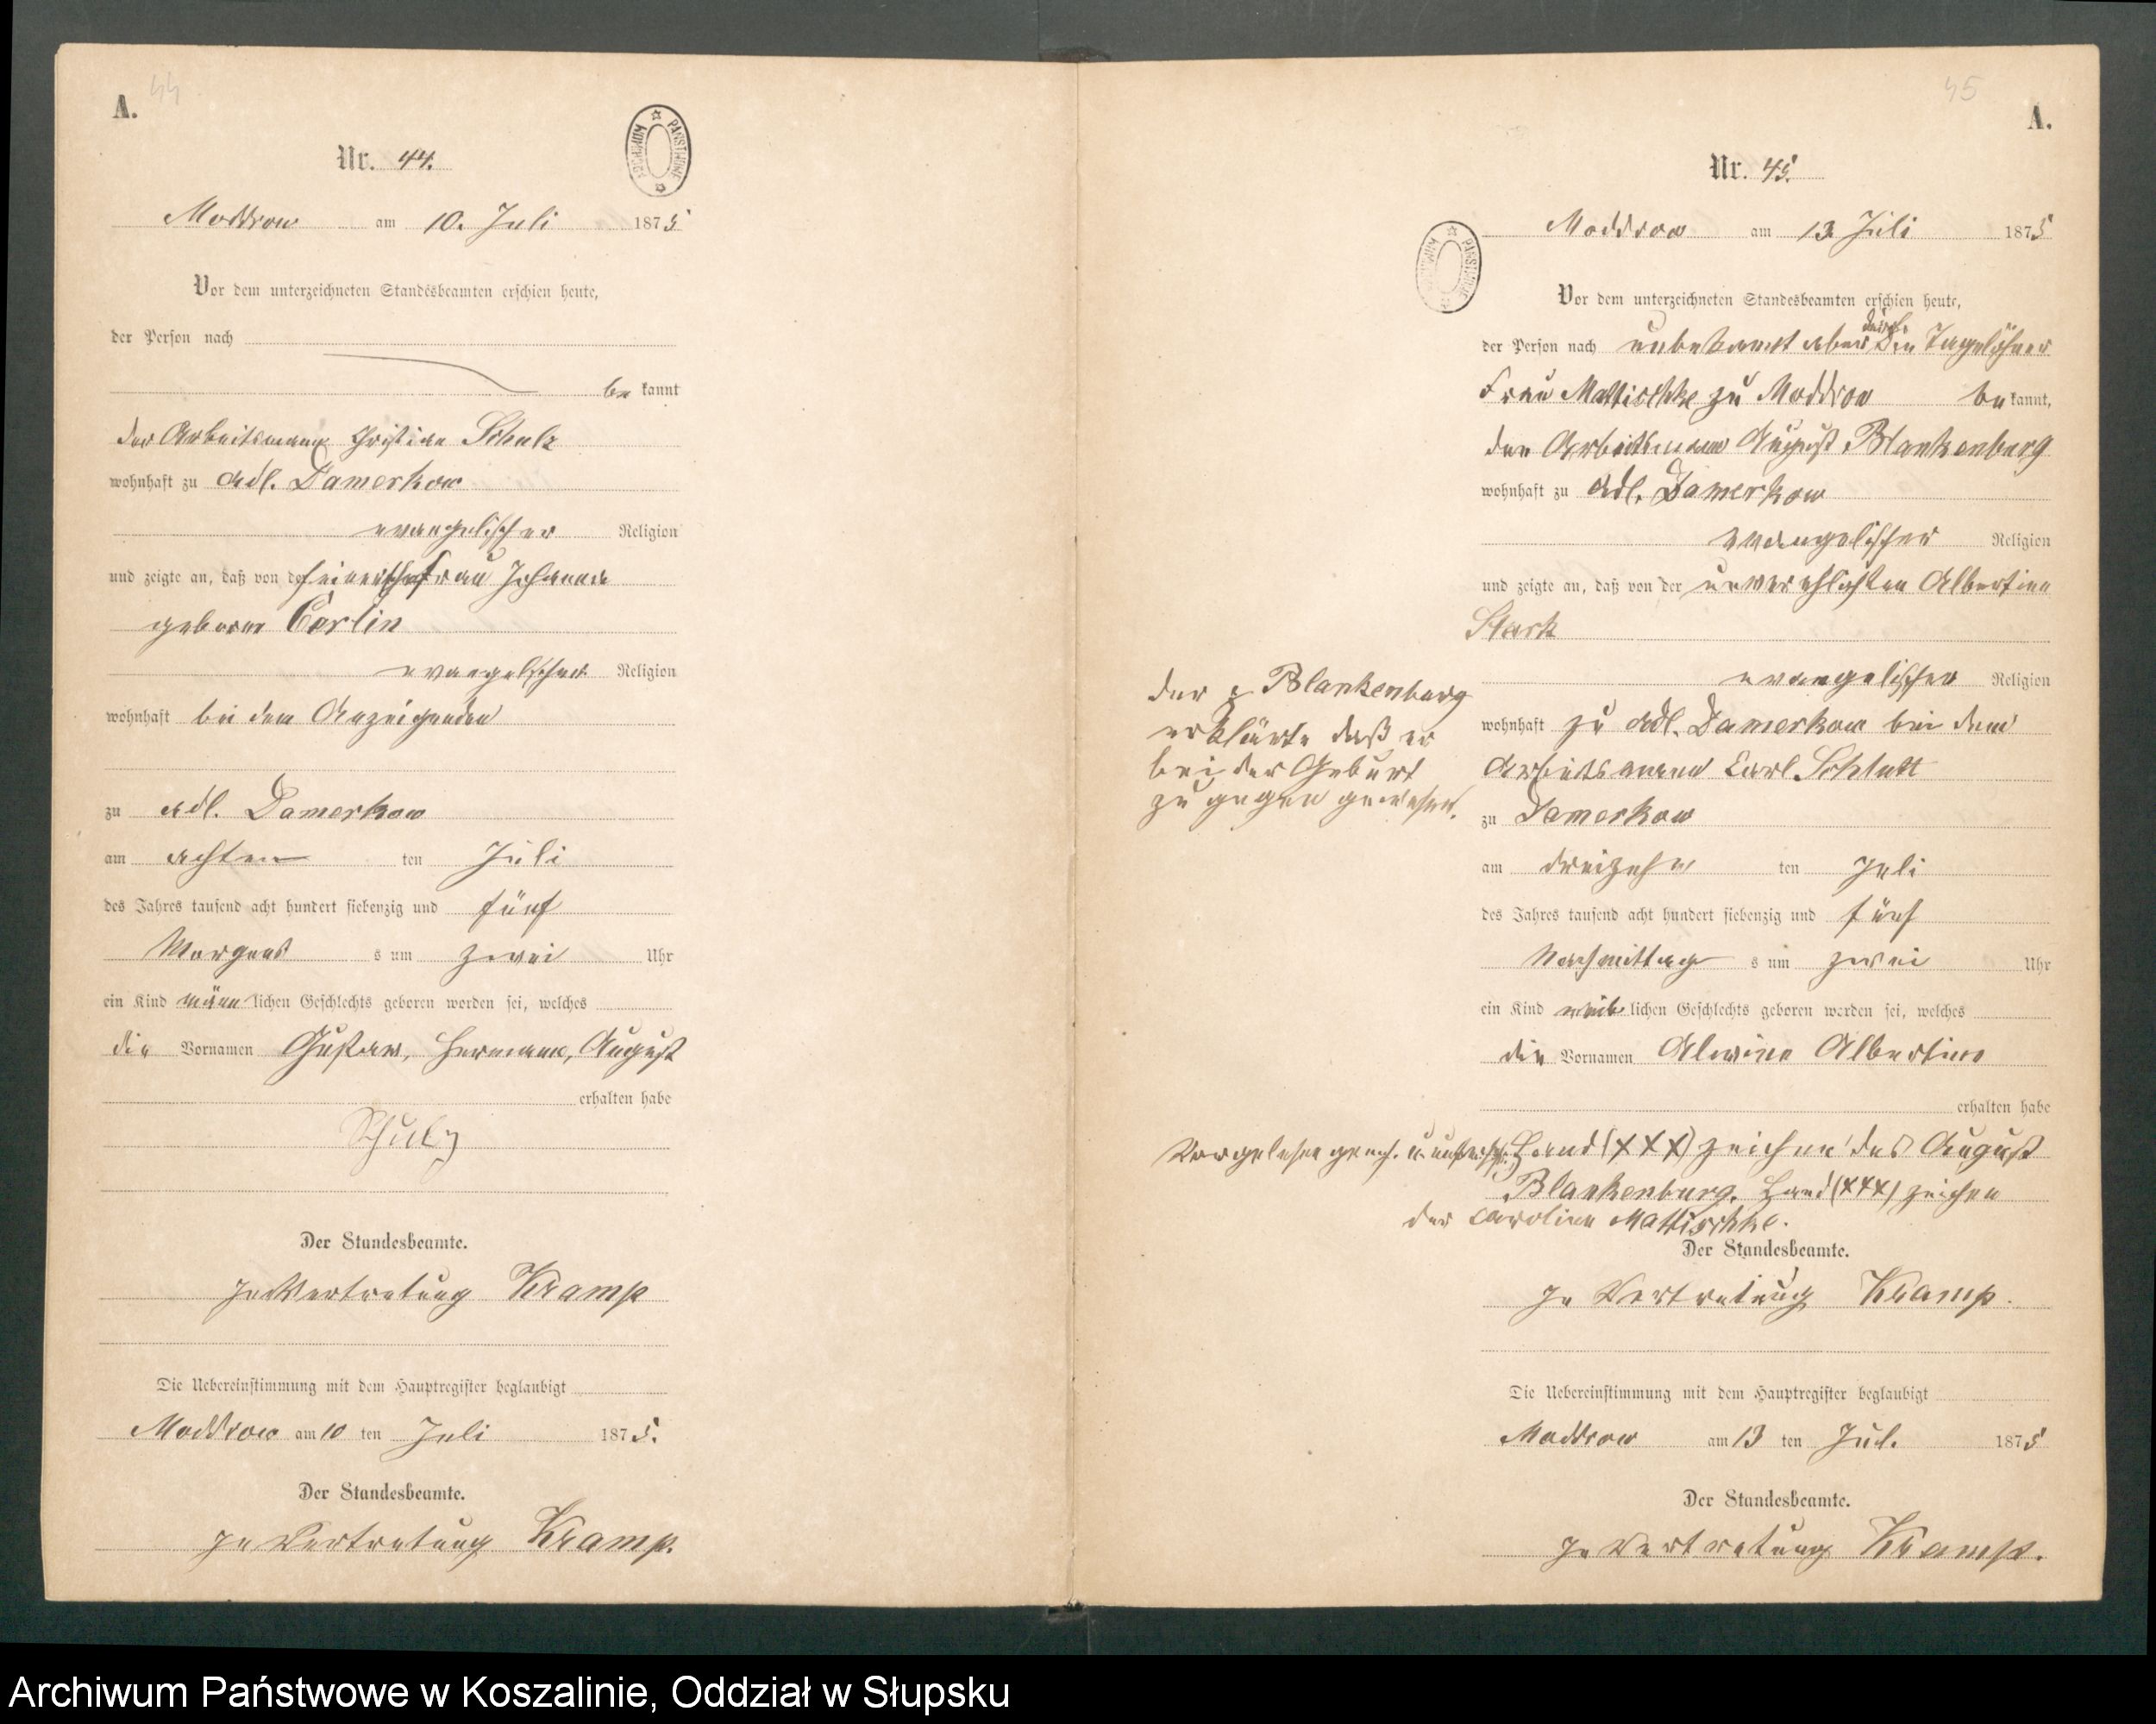 A.
44
Nr. 44.
Moddrow am 10. Juli 1875
Vor dem unterzeichneten Standesbeamten erschien heute,
der Person nach
be kannt
der Arbeitsmann Christian Schulz
wohnhaft zu Adl. Damerkow
evangelischer Religion
und zeigte an, daß von der seiner Ehefrau Johanna
geborne Carlin
evangelischer Religion
wohnhaft bei dem Anzeigenden
zu Adl. Damerkow
am achten ten Juli
des Jahres tausend acht hundert siebenzig und fünf
Morgens s um zwei Uhr
ein Kind männ lichen Geschlechts geboren worden sei, welches
die Vornamen Gustav, Hermann, August
erhalten habe
Schulz
Der Standesbeamte.
In Vertretung Kramp
Die Uebereinstimmung mit dem Hauptregister beglaubigt
Moddrow am 10 ten Juli 1875.
Der Standesbeamte.
In Vertretung Kramp.
45
A.
Nr. 45.
Moddrow am 13 Juli 1875
Vor dem unterzeichneten Standesbeamten erschien heute,
der Person nach unbekannt aber durch die Tagelöhner
Frau Mattischke zu Moddrow be kannt,
der Arbeitsmann August Blankenburg
wohnhaft zu Adl. Damerkow
evangelischer Religion
und zeigte an, daß von der unverehlichten Albertine
Stark
evangelischer Religion
wohnhaft zu Adl. Damerkow bei dem
Arbeitsmann Carl Schlutt
zu Damerkow
am dreizehn ten Juli
des Jahres tausend acht hundert siebenzig und fünf
Nachmittag s um zwei Uhr
ein Kind weib lichen Geschlechts geboren worden sei, welches
die Vornamen Alwine Albertine
erhalten habe
der Blankenburg
erklärte daß er
bei der Geburt
zu gegen gewesen.
Vorgelesen genh. u. unterschr. Hand (XXX) zeichen des August
Blankenburg. Hand (XXX) zeichen
der Caroline Mattischke.
Der Standesbeamte.
In Vertretung Kramp.
Die Uebereinstimmung mit dem Hauptregister beglaubigt
Moddrow am 13 ten Jul. 1875
Der Standesbeamte.
In Vertretung Kramp.
Archiwum Państwowe w Koszalinie, Oddział w Słupsku